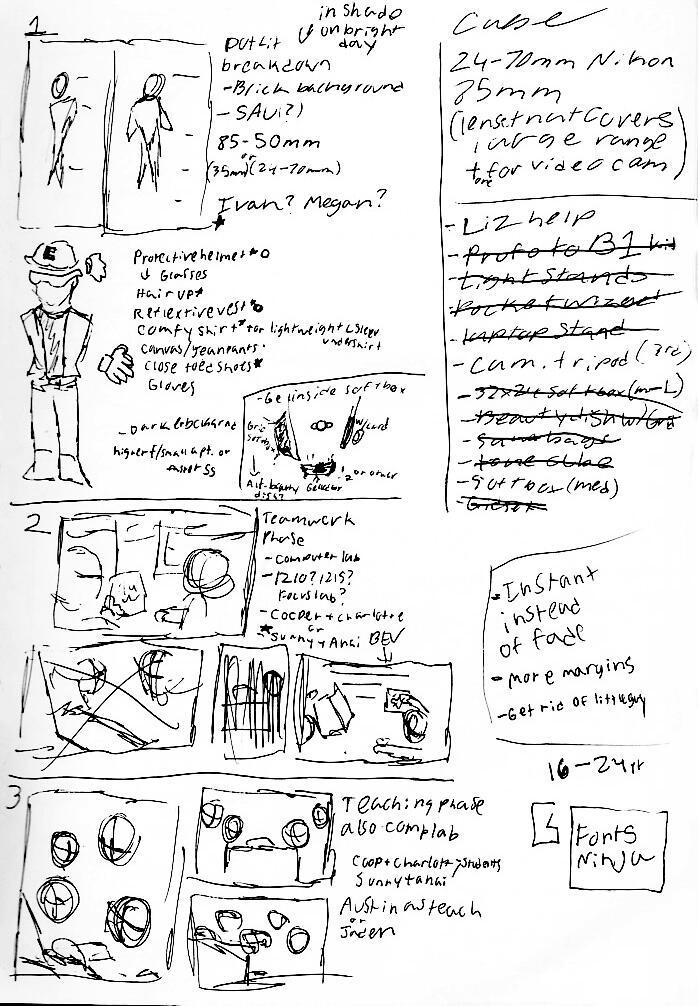 1
in shado
on bright
day
Outfit
breakdown
- Brick background
- SAU(?)
85-50mm
or
(35mm)(24-70mm)
Ivan? Megan?
E
Protective helmet
↓ Glasses
Hair up
Reflextive vest
Comfy shirt for lightweight L Sleeve
undershirt
Canvas/Jean pants
Close toed shoes
Gloves
- Darker backgrnd
higher f/small apt. or
faster SS
- Ge inside softbox
w/card
Alt-beauty
dish?
or other
2
Teamwork
Phase
- Computer lab
- 1210? 1215?
Focus lab?
- Cooper + Charlotte
or
- Sunny + Anai
BEV
3
Teaching phase
also comp lab
Coop + Charlotte → students
Sunny + anai
Austin as teach
or
Jaden
Case
24-70mm Nikon
85mm
(lenset nut covers
large range
+ for video cam)
one
- Liz help
- Profoto B1 kit
- Light Stands
- Pocket wizard
- Laptop Stand
- Cam. tripod (3rd)
- 32x24 Softbox (m-L)
- Beauty dish w/ Grid
- Sand bags
- Tone cube
- Softbox (med)
- Instant
instead
of fade
- more margins
- Get rid of little guy
16-24pt
Fonts
Ninja